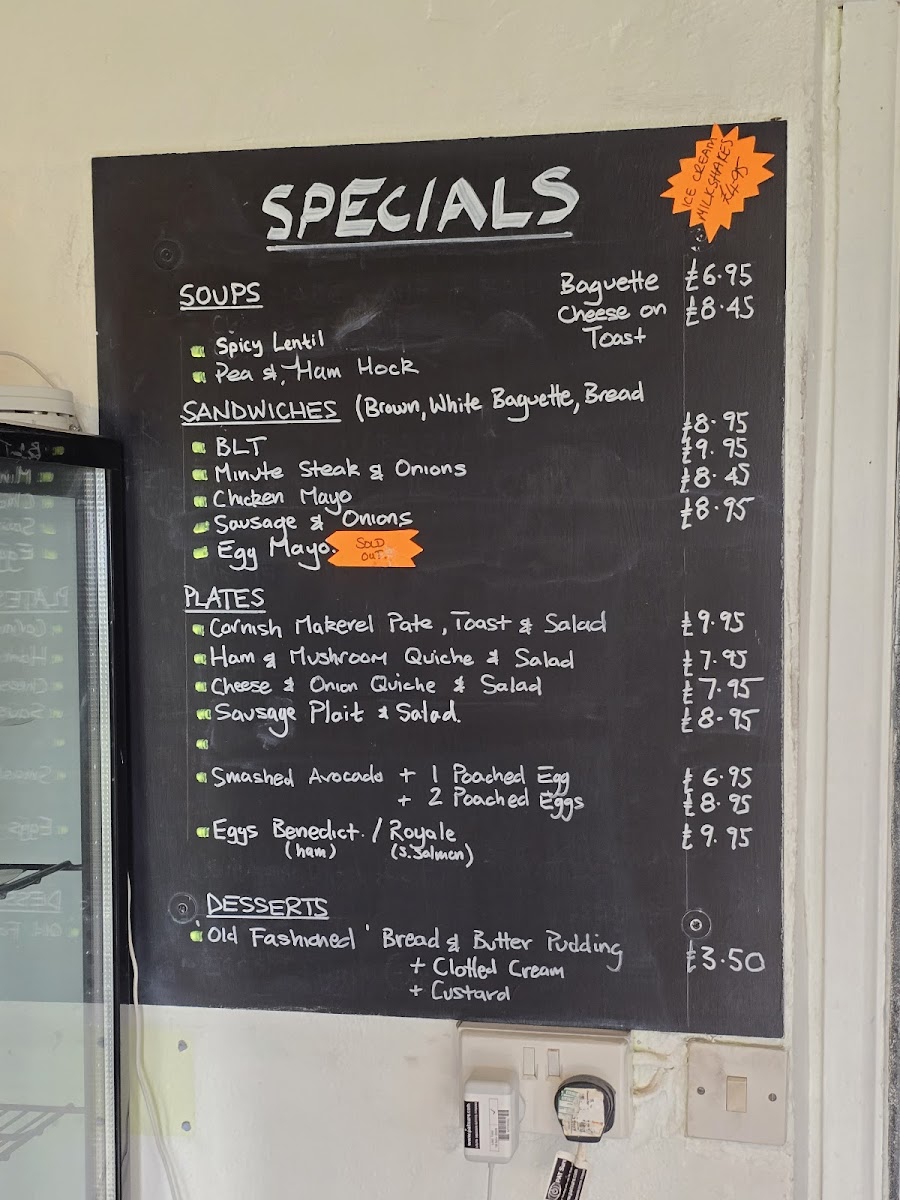 SPECIALS
ICE CREAM
MILKSHAKES
£4.95
SOUPS
Baguette £6.95
Cheese on £8.45
Toast
Spicy Lentil
Pea & Ham Hock
SANDWICHES (Brown, White Baguette, Bread
BLT £8.95
Minute Steak & Onions £9.95
Chicken Mayo £8.45
Sausage & Onions £8.95
Egg Mayo. SOLD
OUT
PLATES
Cornish Makerel Pate, Toast & Salad £9.95
Ham & Mushroom Quiche & Salad £7.95
Cheese & Onion Quiche & Salad £7.95
Sausage Plait & Salad. £8.95
Smashed Avocado + 1 Poached Egg £6.95
+ 2 Poached Eggs £8.95
Eggs Benedict / Royale £9.95
(ham) (s.salmon)
DESSERTS
'Old Fashioned' Bread & Butter Pudding £3.50
+ Clotted Cream
+ Custard